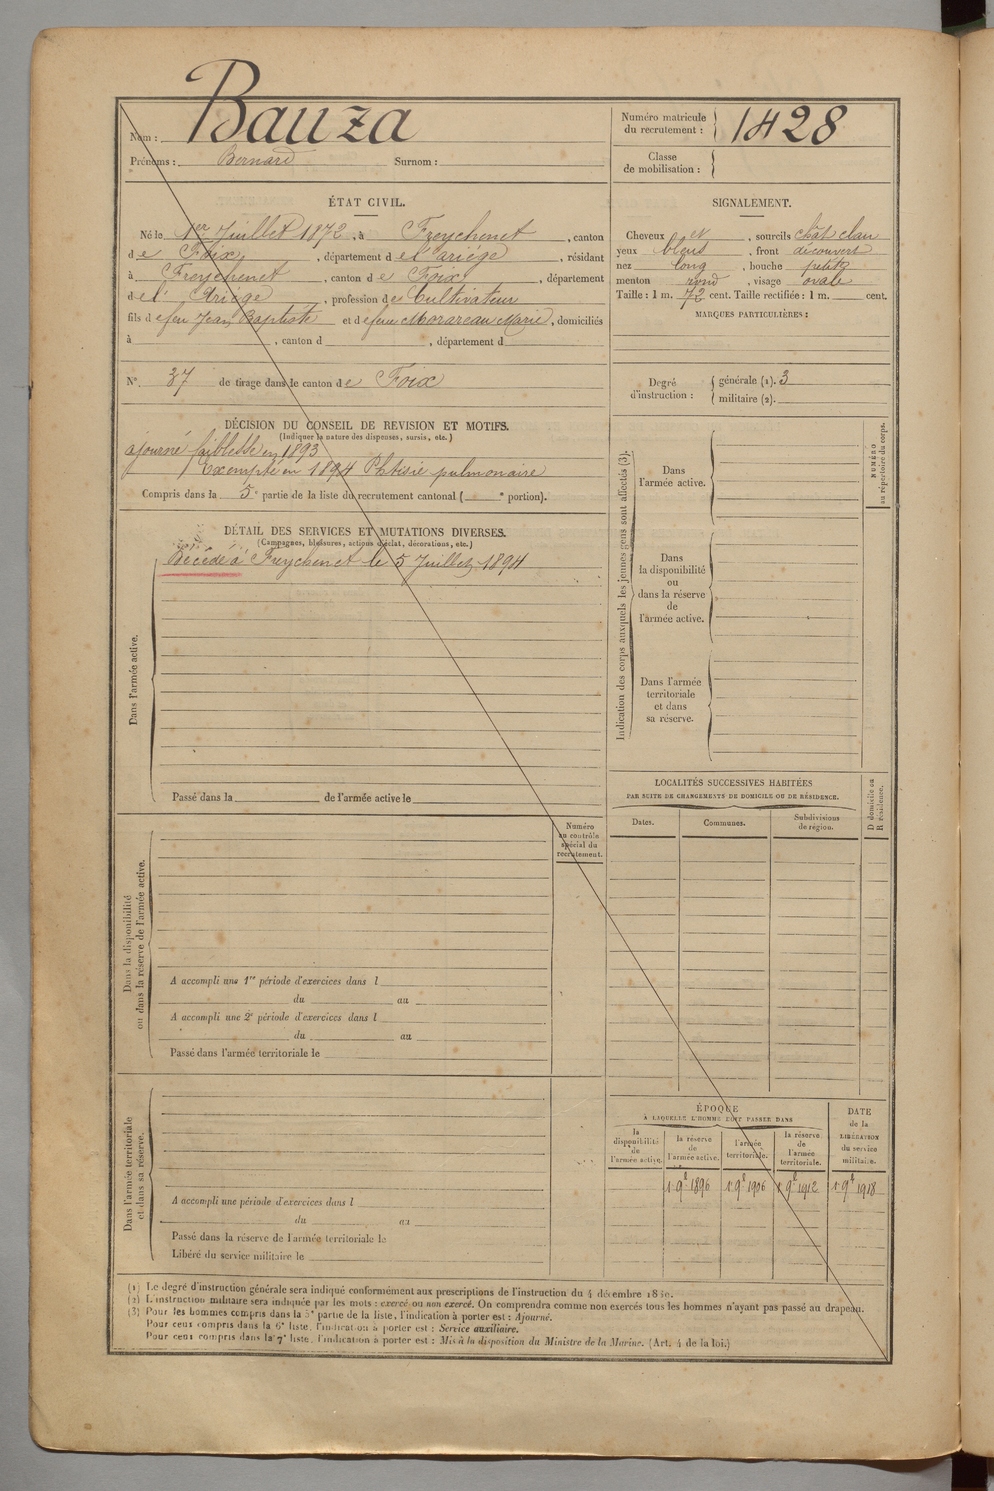 Nom : Bauza
Prénoms : Bernard Surnom :
Numéro matricule du recrutement : 1428
Classe de mobilisation :
ÉTAT CIVIL.
Né le 1er Juillet 1872, à Freychenet, canton
de Foix, département de l'ariège, résidant
à Freychenet, canton de Foix, département
de l'Ariège, profession de Cultivateur
fils de feu Jean Baptiste et de feue Marie, domiciliés
à , canton d , département d
N° 37 de tirage dans le canton de Foix
SIGNALEMENT.
Cheveux et , sourcils chât clair
yeux bleus , front découvert
nez long , bouche petite
menton rond , visage ovale
Taille : 1 m. 72 cent. Taille rectifiée : 1 m. cent.
MARQUES PARTICULIÈRES :
Degré d'instruction : générale (1). 3
militaire (2).
DÉCISION DU CONSEIL DE REVISION ET MOTIFS.
(Indiquer la nature des dispenses, sursis, etc.)
ajourné faiblesse en 1893
Exempté en 1894 Phtisie pulmonaire
Compris dans la 5e partie de la liste du recrutement cantonal ( e portion).
DÉTAIL DES SERVICES ET MUTATIONS DIVERSES.
(Campagnes, blessures, actions d'éclat, décorations, etc.)
Décédé à Freychenet le 5 Juillet 1894
Dans l'armée active.
Passé dans la de l'armée active le
Indication des corps auxquels les jeunes gens sont affectés (3).
Dans l'armée active.
Dans la disponibilité ou dans la réserve de l'armée active.
Dans l'armée territoriale et dans sa réserve.
NUMÉRO au répertoire du corps.
LOCALITÉS SUCCESSIVES HABITÉES
PAR SUITE DE CHANGEMENTS DE DOMICILE OU DE RÉSIDENCE.
Dates. Communes. Subdivisions de région.
D domicile ou R résidence.
Numéro au contrôle spécial du recrutement.
Dans la disponibilité ou dans la réserve de l'armée active.
A accompli une 1re période d'exercices dans l
du au
A accompli une 2e période d'exercices dans l
du au
Passé dans l'armée territoriale le
Dans l'armée territoriale et dans sa réserve.
A accompli une période d'exercices dans l
du au
Passé dans la réserve de l'armée territoriale le
Libéré du service militaire le
ÉPOQUE
À LAQUELLE L'HOMME DOIT PASSER DANS
la disponibilité de l'armée active.
la réserve de l'armée active.
l'armée territoriale.
la réserve de l'armée territoriale.
DATE de la LIBÉRATION du service militaire.
1 9e 1896 1 9e 1906 1 9e 1912 1 9e 1918
(1) Le degré d'instruction générale sera indiqué conformément aux prescriptions de l'instruction du 4 décembre
(2) L'instruction militaire sera indiquée par les mots : exercé ou non exercé. On comprendra comme non exercés tous les hommes n'ayant pas passé au drapeau.
(3) Pour les hommes compris dans la 5e partie de la liste, l'indication à porter est : Ajourné.
Pour ceux compris dans la 6e liste, l'indication à porter est : Service auxiliaire.
Pour ceux compris dans la 7e liste, l'indication à porter est : Mis à la disposition du Ministre de la Marine. (Art. 4 de la loi.)